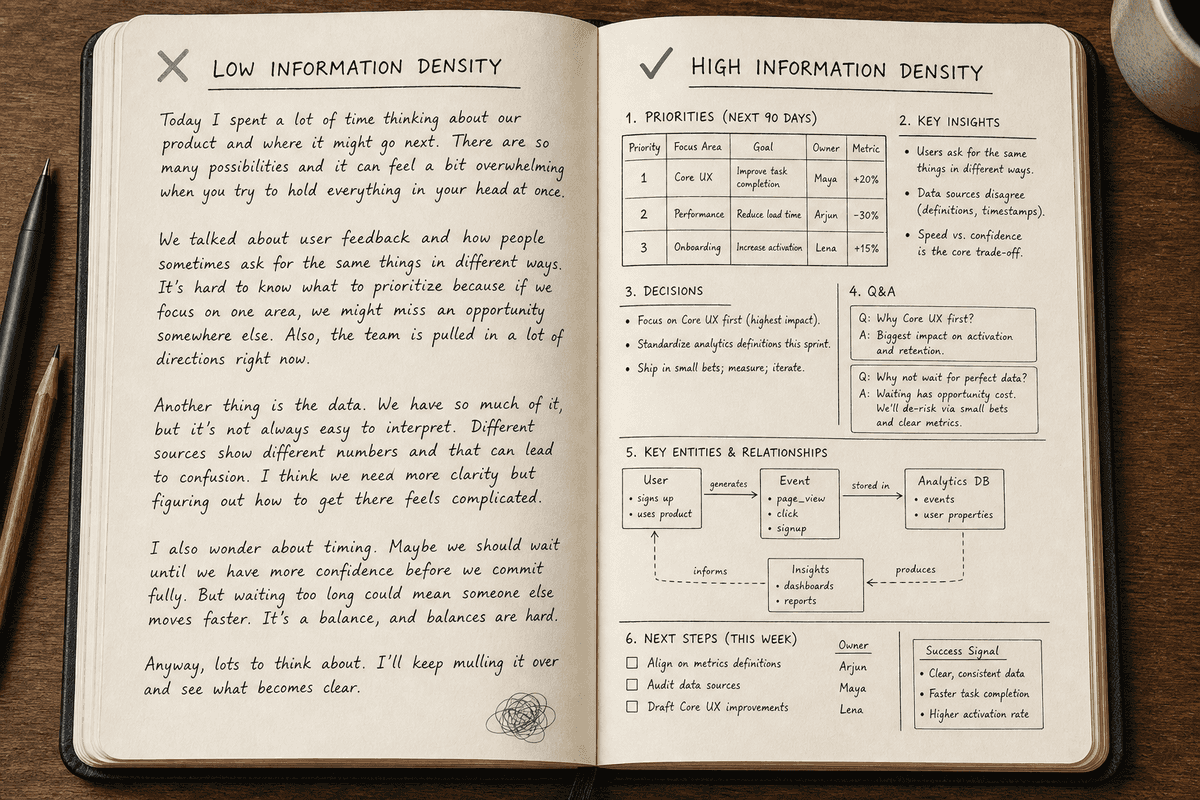 LOW INFORMATION DENSITY
Today I spent a lot of time thinking about our
product and where it might go next. There are so
many possibilities and it can feel a bit overwhelming
when you try to hold everything in your head at once.
We talked about user feedback and how people
sometimes ask for the same things in different ways.
It's hard to know what to prioritize because if we
focus on one area, we might miss an opportunity
somewhere else. Also, the team is pulled in a lot of
directions right now.
Another thing is the data. We have so much of it,
but it's not always easy to interpret. Different
sources show different numbers and that can lead
to confusion. I think we need more clarity but
figuring out how to get there feels complicated.
I also wonder about timing. Maybe we should wait
until we have more confidence before we commit
fully. But waiting too long could mean someone else
moves faster. It's a balance, and balances are hard.
Anyway, lots to think about. I'll keep mulling it over
and see what becomes clear.
HIGH INFORMATION DENSITY
1. PRIORITIES (NEXT 90 DAYS)
Priority Focus Area Goal Owner Metric
1 Core UX Improve task completion Maya +20%
2 Performance Reduce load time Arjun -30%
3 Onboarding Increase activation Lena +15%
2. KEY INSIGHTS
• Users ask for the same
things in different ways.
• Data sources disagree
(definitions, timestamps).
• Speed vs. confidence
is the core trade-off.
3. DECISIONS
• Focus on Core UX first (highest impact).
• Standardize analytics definitions this sprint.
• Ship in small bets; measure; iterate.
4. Q&A
Q: Why Core UX first?
A: Biggest impact on activation
and retention.
Q: Why not wait for perfect data?
A: Waiting has opportunity cost.
We'll de-risk via small bets
and clear metrics.
5. KEY ENTITIES & RELATIONSHIPS
User
• signs up
• uses product
generates
Event
• page_view
• click
• signup
stored in
Analytics DB
• events
• user properties
produces
Insights
• dashboards
• reports
informs
6. NEXT STEPS (THIS WEEK) Owner
Align on metrics definitions Arjun
Audit data sources Maya
Draft Core UX improvements Lena
Success Signal
• Clear, consistent data
• Faster task completion
• Higher activation rate